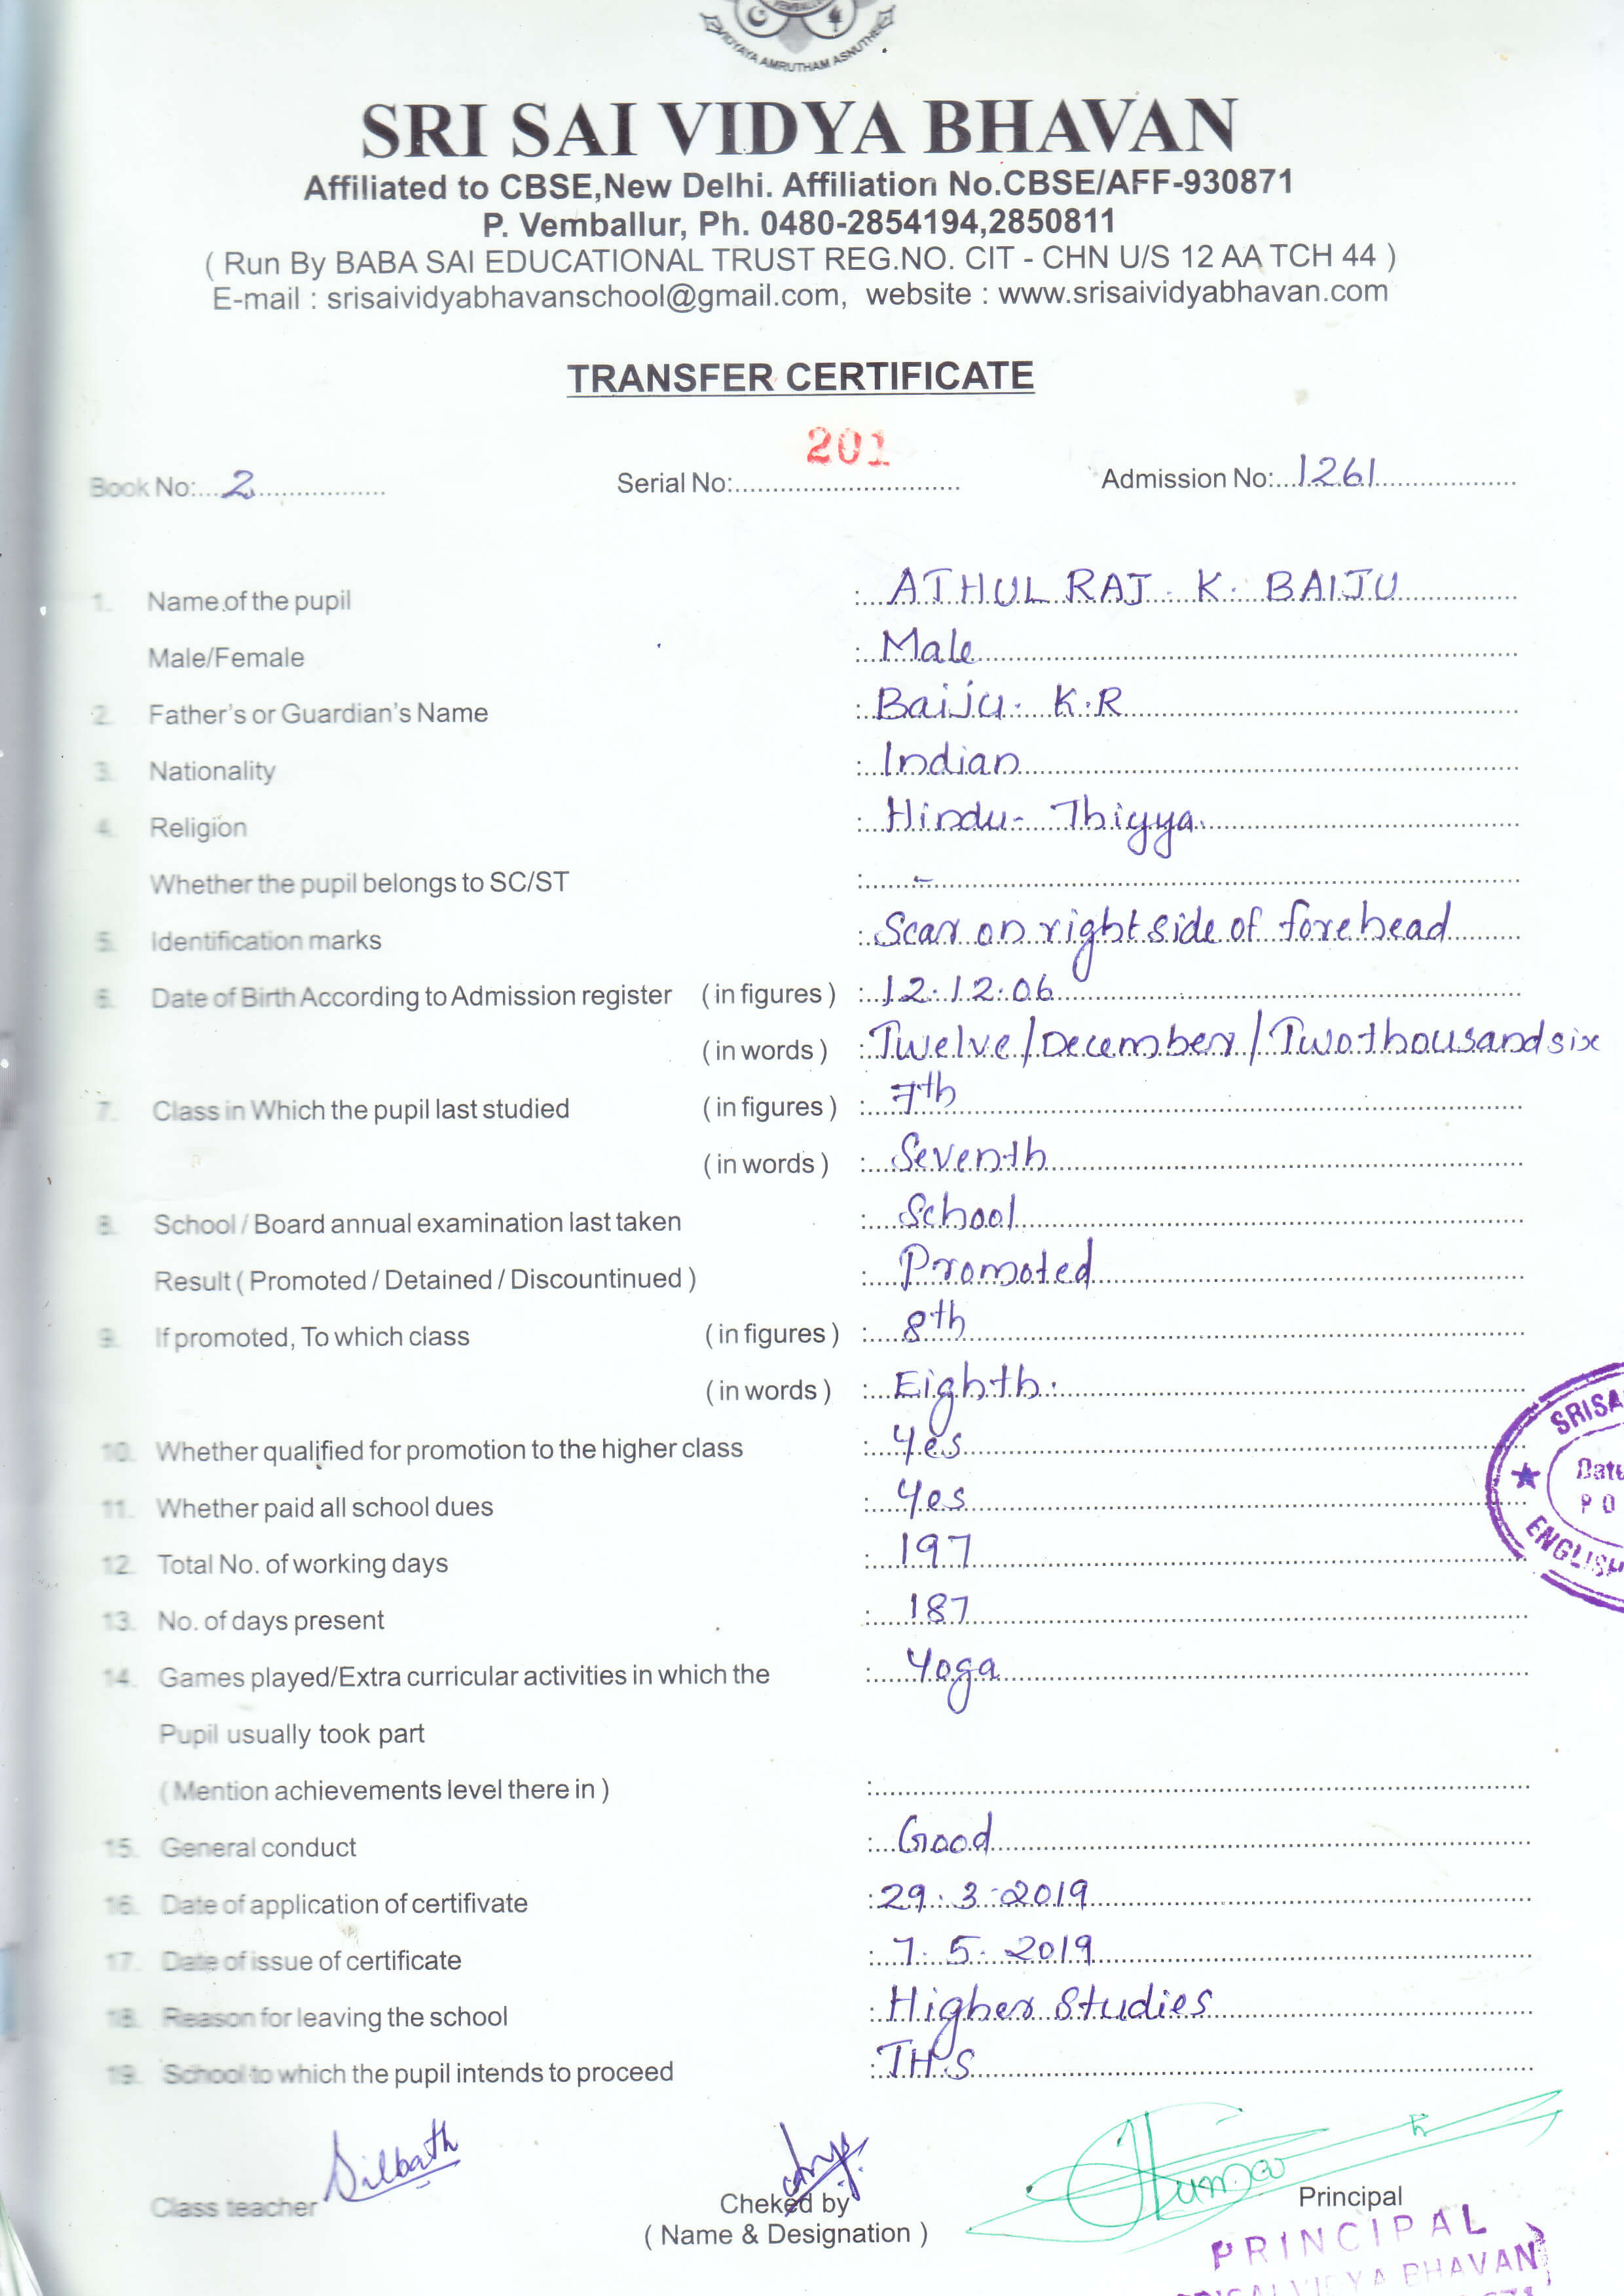 VEMBALLUR
VIDYAYA AMRUTHAM ASNUTHE
SRI SAI VIDYA BHAVAN
Affiliated to CBSE,New Delhi. Affiliation No.CBSE/AFF-930871
P. Vemballur, Ph. 0480-2854194,2850811
( Run By BABA SAI EDUCATIONAL TRUST REG.NO. CIT - CHN U/S 12 AA TCH 44 )
E-mail : srisaividyabhavanschool@gmail.com, website : www.srisaividyabhavan.com
TRANSFER CERTIFICATE
Book No: 2 Serial No: 201 Admission No: 1261
1. Name of the pupil : ATHUL RAJ. K. BAIJU
Male/Female : Male
2. Father's or Guardian's Name : Baiju. K.R
3. Nationality : Indian
4. Religion : Hindu- Thiyya
Whether the pupil belongs to SC/ST : -
5. Identification marks : Scar on right side of forehead
6. Date of Birth According to Admission register ( in figures ) : 12.12.06
( in words ) : Twelve/December/Twothousandsix
7. Class in Which the pupil last studied ( in figures ) : 7th
( in words ) : Seventh
8. School / Board annual examination last taken : School
Result ( Promoted / Detained / Discountinued ) : Promoted
9. If promoted, To which class ( in figures ) : 8th
( in words ) : Eighth.
10. Whether qualified for promotion to the higher class : Yes
11. Whether paid all school dues : Yes
12. Total No. of working days : 197
13. No. of days present : 187
14. Games played/Extra curricular activities in which the : Yoga
Pupil usually took part
( Mention achievements level there in ) :
15. General conduct : Good
16. Date of application of certifivate : 29.3.2019
17. Date of issue of certificate : 7.5.2019
18. Reason for leaving the school : Higher Studies
19. School to which the pupil intends to proceed : T.H.S
SRISA
Date
P O
ENGLISH
Silbath
Class teacher
Cheked by
( Name & Designation )
Principal
PRINCIPAL
SRI SAI VIDYA BHAVAN